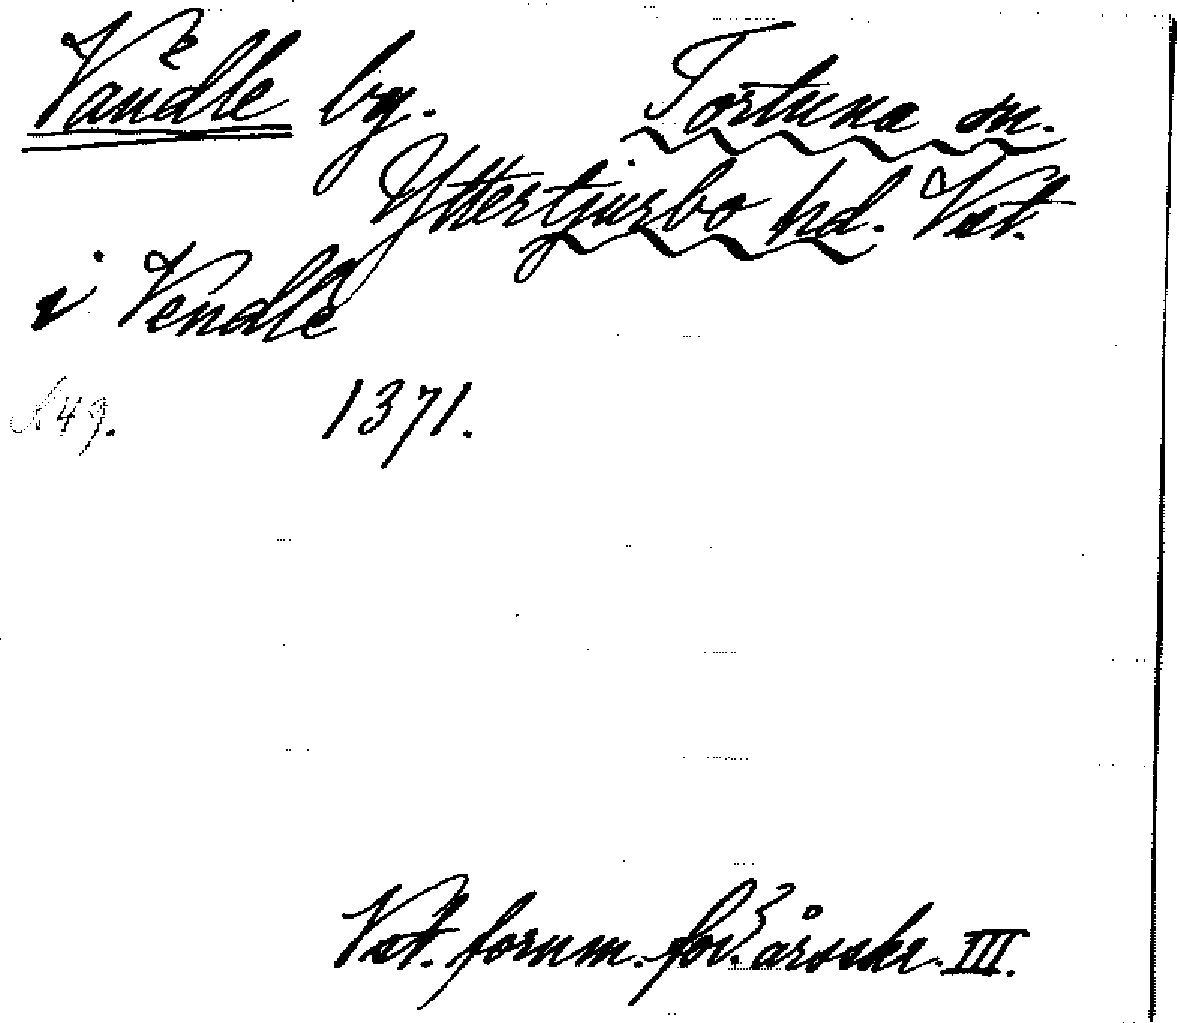 Vändle by. Tortuna sn.
Yttertjurbo hd. Vst.
i Vendle
S. 49. 1371.
Vst. fornm. för:s årsskr. III.